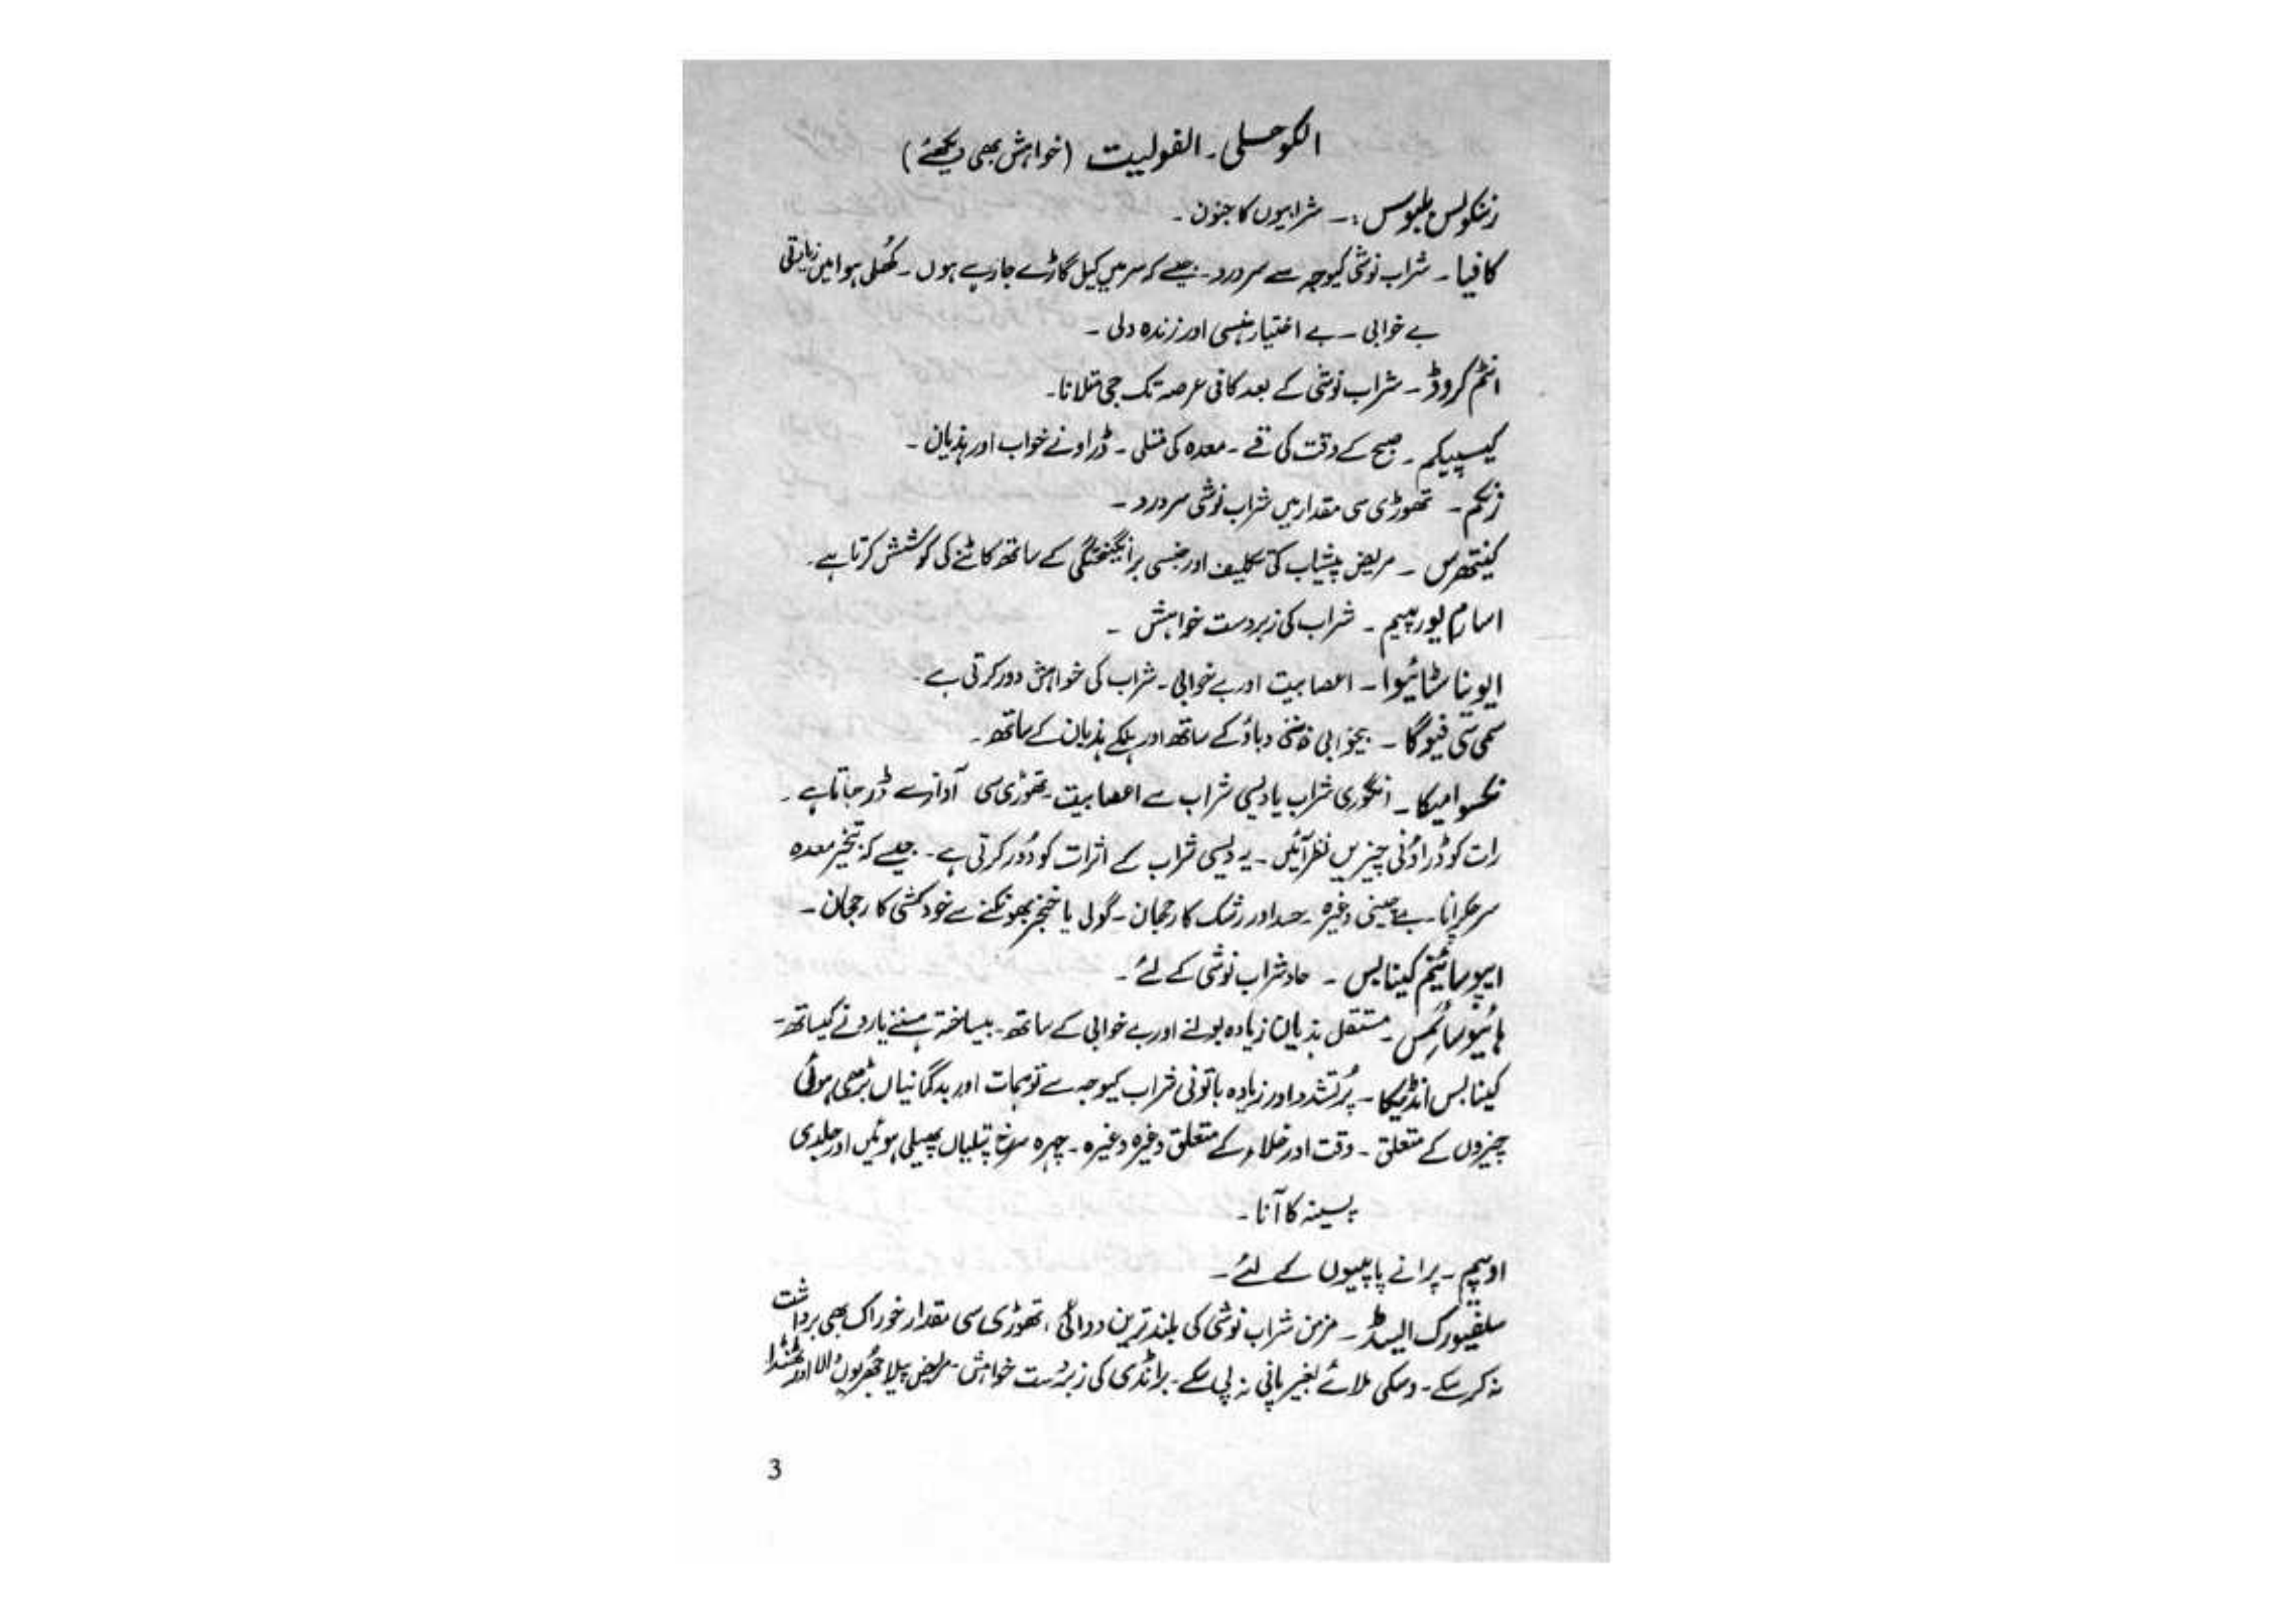 الکوحلی۔ الفولیت (خواہش بھی دیکھئے)
زنکولس بلبوس :۔ شرابیوں کا جنون۔
کافیا ۔ شراب نوشی کیوجہ سے سر درد۔ جیسے کہ سر میں کیل گاڑے جا رہے ہوں۔ کھُلی ہوا میں زیادتی
بے خوابی ۔ بے اختیار ہنسی اور زندہ دلی ۔
انٹم کروڈ ۔ شراب نوشی کے بعد کافی عرصہ تک جی متلانا۔
کیپسیکم ۔ صبح کے وقت کی قے ۔ معدہ کی متلی ۔ ڈراونے خواب اور ہذیان ۔
زنکم ۔ تھوڑی سی مقدار میں شراب نوشی سر درد ۔
کینتھرس ۔ مریض پیشاب کی تکلیف اور جنسی برانگیختگی کے ساتھ کاٹنے کی کوشش کرتا ہے۔
اسارم یورپیم ۔ شراب کی زبردست خواہش ۔
ایوینا سٹائیوا ۔ اعصابیت اور بے خوابی ۔ شراب کی خواہش دور کرتی ہے۔
سمی سی فیوگا ۔ بیخوابی ذہنی دباؤ کے ساتھ اور ہلکے ہذیان کے ساتھ ۔
نکسوامیکا ۔ انگوری شراب یا دیسی شراب سے اعصابیت۔ تھوڑی سی آواز سے ڈر جاتا ہے ۔
رات کو ڈراؤنی چیزیں نظر آئیں ۔ یہ دیسی شراب کے اثرات کو دُور کرتی ہے ۔ جیسے کہ تبخیر معدہ
سر چکرانا ۔ بے چینی وغیرہ ۔ حسد اور رشک کا رحجان ۔ گولی یا خنجر بھونکنے سے خودکشی کا رحجان ۔
ایپوسائینم کینابس ۔ حاد شراب نوشی کے لئے ۔
ہائیوسائمس ۔ مستقل ہذیان زیادہ بولنے اور بے خوابی کے ساتھ ۔ بیساختہ ہنسنے یا رونے کیساتھ ۔
کینابس انڈیکا ۔ پُرتشدد اور زیادہ باتونی شراب کیوجہ سے توہمات اور بدگمانیاں بڑھی ہوئی
چیزوں کے متعلق ۔ وقت اور خلاء کے متعلق وغیرہ وغیرہ ۔ چہرہ سرخ پتلیاں پھیلی ہوئیں اور جلدی
پسینہ کا آنا ۔
اوپیم ۔ پرانے پاپیوں کے لئے ۔
سلفیورک ایسڈ ۔ مزمن شراب نوشی کی بلند ترین دوائی ، تھوڑی سی مقدار خوراک بھی برداشت
نہ کر سکے ۔ وسکی ملائے بغیر پانی نہ پی سکے ۔ برانڈی کی زبردست خواہش ۔ مریض پیلا جھُریوں والا اور ٹھنڈا
3